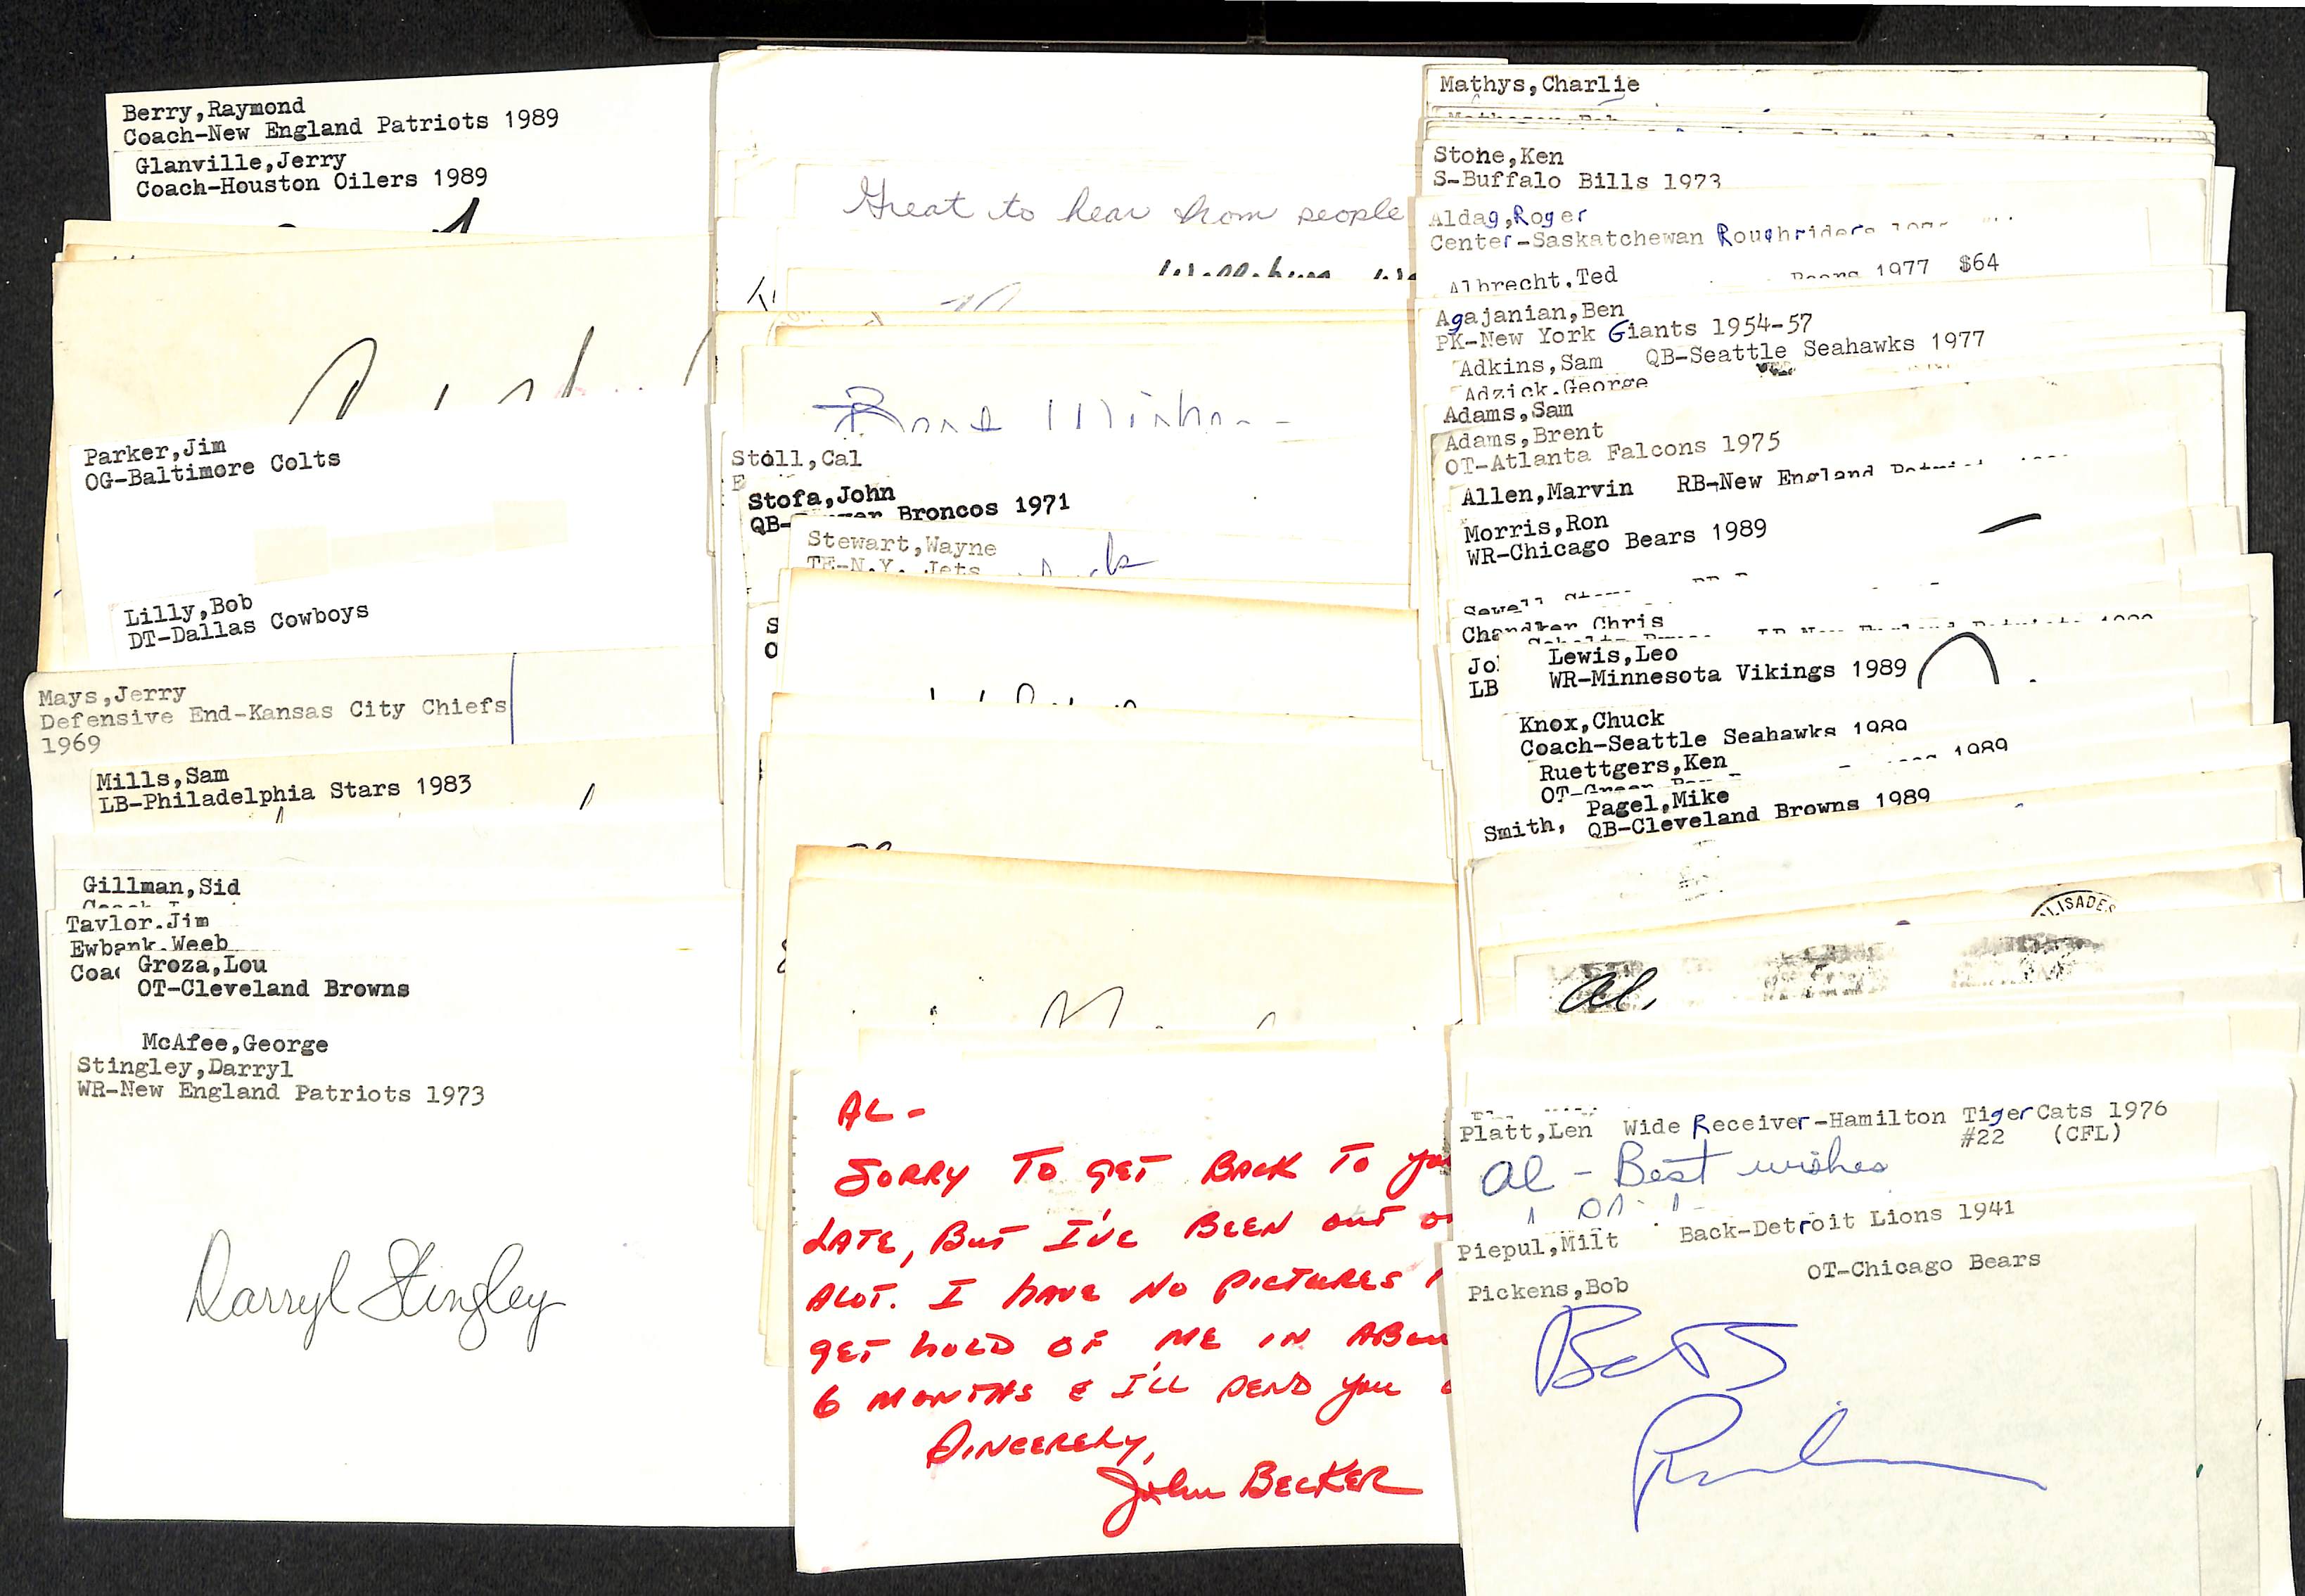 Berry,Raymond
Coach-New England Patriots 1989
Glanville,Jerry
Coach-Houston Oilers 1989
Parker,Jim
OG-Baltimore Colts
Lilly,Bob
DT-Dallas Cowboys
Mays,Jerry
Defensive End-Kansas City Chiefs
1969
Mills,Sam
LB-Philadelphia Stars 1983
Gillman,Sid
Taylor,Jim
Ewbank,Weeb
Groza,Lou
OT-Cleveland Browns
McAfee,George
Stingley,Darryl
WR-New England Patriots 1973
Darryl Stingley
Great to hear from people
Best Wishes
Stoll,Cal
Stofa,John
QB- Broncos 1971
Stewart,Wayne
TE-N.Y. Jets
AL -
SORRY TO GET BACK TO YOU
LATE, BUT I'VE BEEN OUT
ALOT. I HAVE NO PICTURES
GET HOLD OF ME IN
6 MONTHS & I'LL SEND YOU
SINCERELY,
John BECKER
Mathys,Charlie
Stone,Ken
S-Buffalo Bills 1973
Aldag,Roger
Center-Saskatchewan Roughriders
Albrecht,Ted Bears 1977 $64
Agajanian,Ben
PK-New York Giants 1954-57
Adkins,Sam QB-Seattle Seahawks 1977
Adzick,George
Adams,Sam
Adams,Brent
OT-Atlanta Falcons 1975
Allen,Marvin RB-New England
Morris,Ron
WR-Chicago Bears 1989
Chandler Chris
Jo
LB
Lewis,Leo
WR-Minnesota Vikings 1989
Knox,Chuck
Coach-Seattle Seahawks 1989
Ruettgers,Ken
1989
Pagel,Mike
Smith, QB-Cleveland Browns 1989
Al,
Platt,Len Wide Receiver-Hamilton TigerCats 1976
#22 (CFL)
Al - Best wishes
Piepul,Milt Back-Detroit Lions 1941
Pickens,Bob OT-Chicago Bears